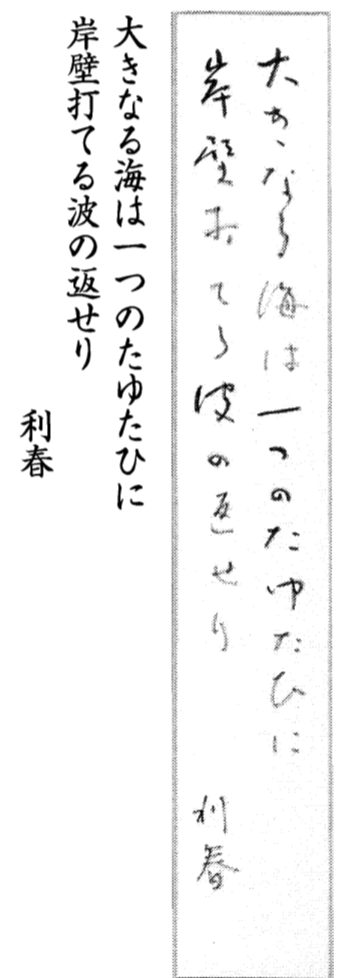 大きなる海は一つのたゆたひに
岸壁打てる波の返せり
利春
大きなる海は一つのたゆたひに
岸壁打てる波の返せり
利春